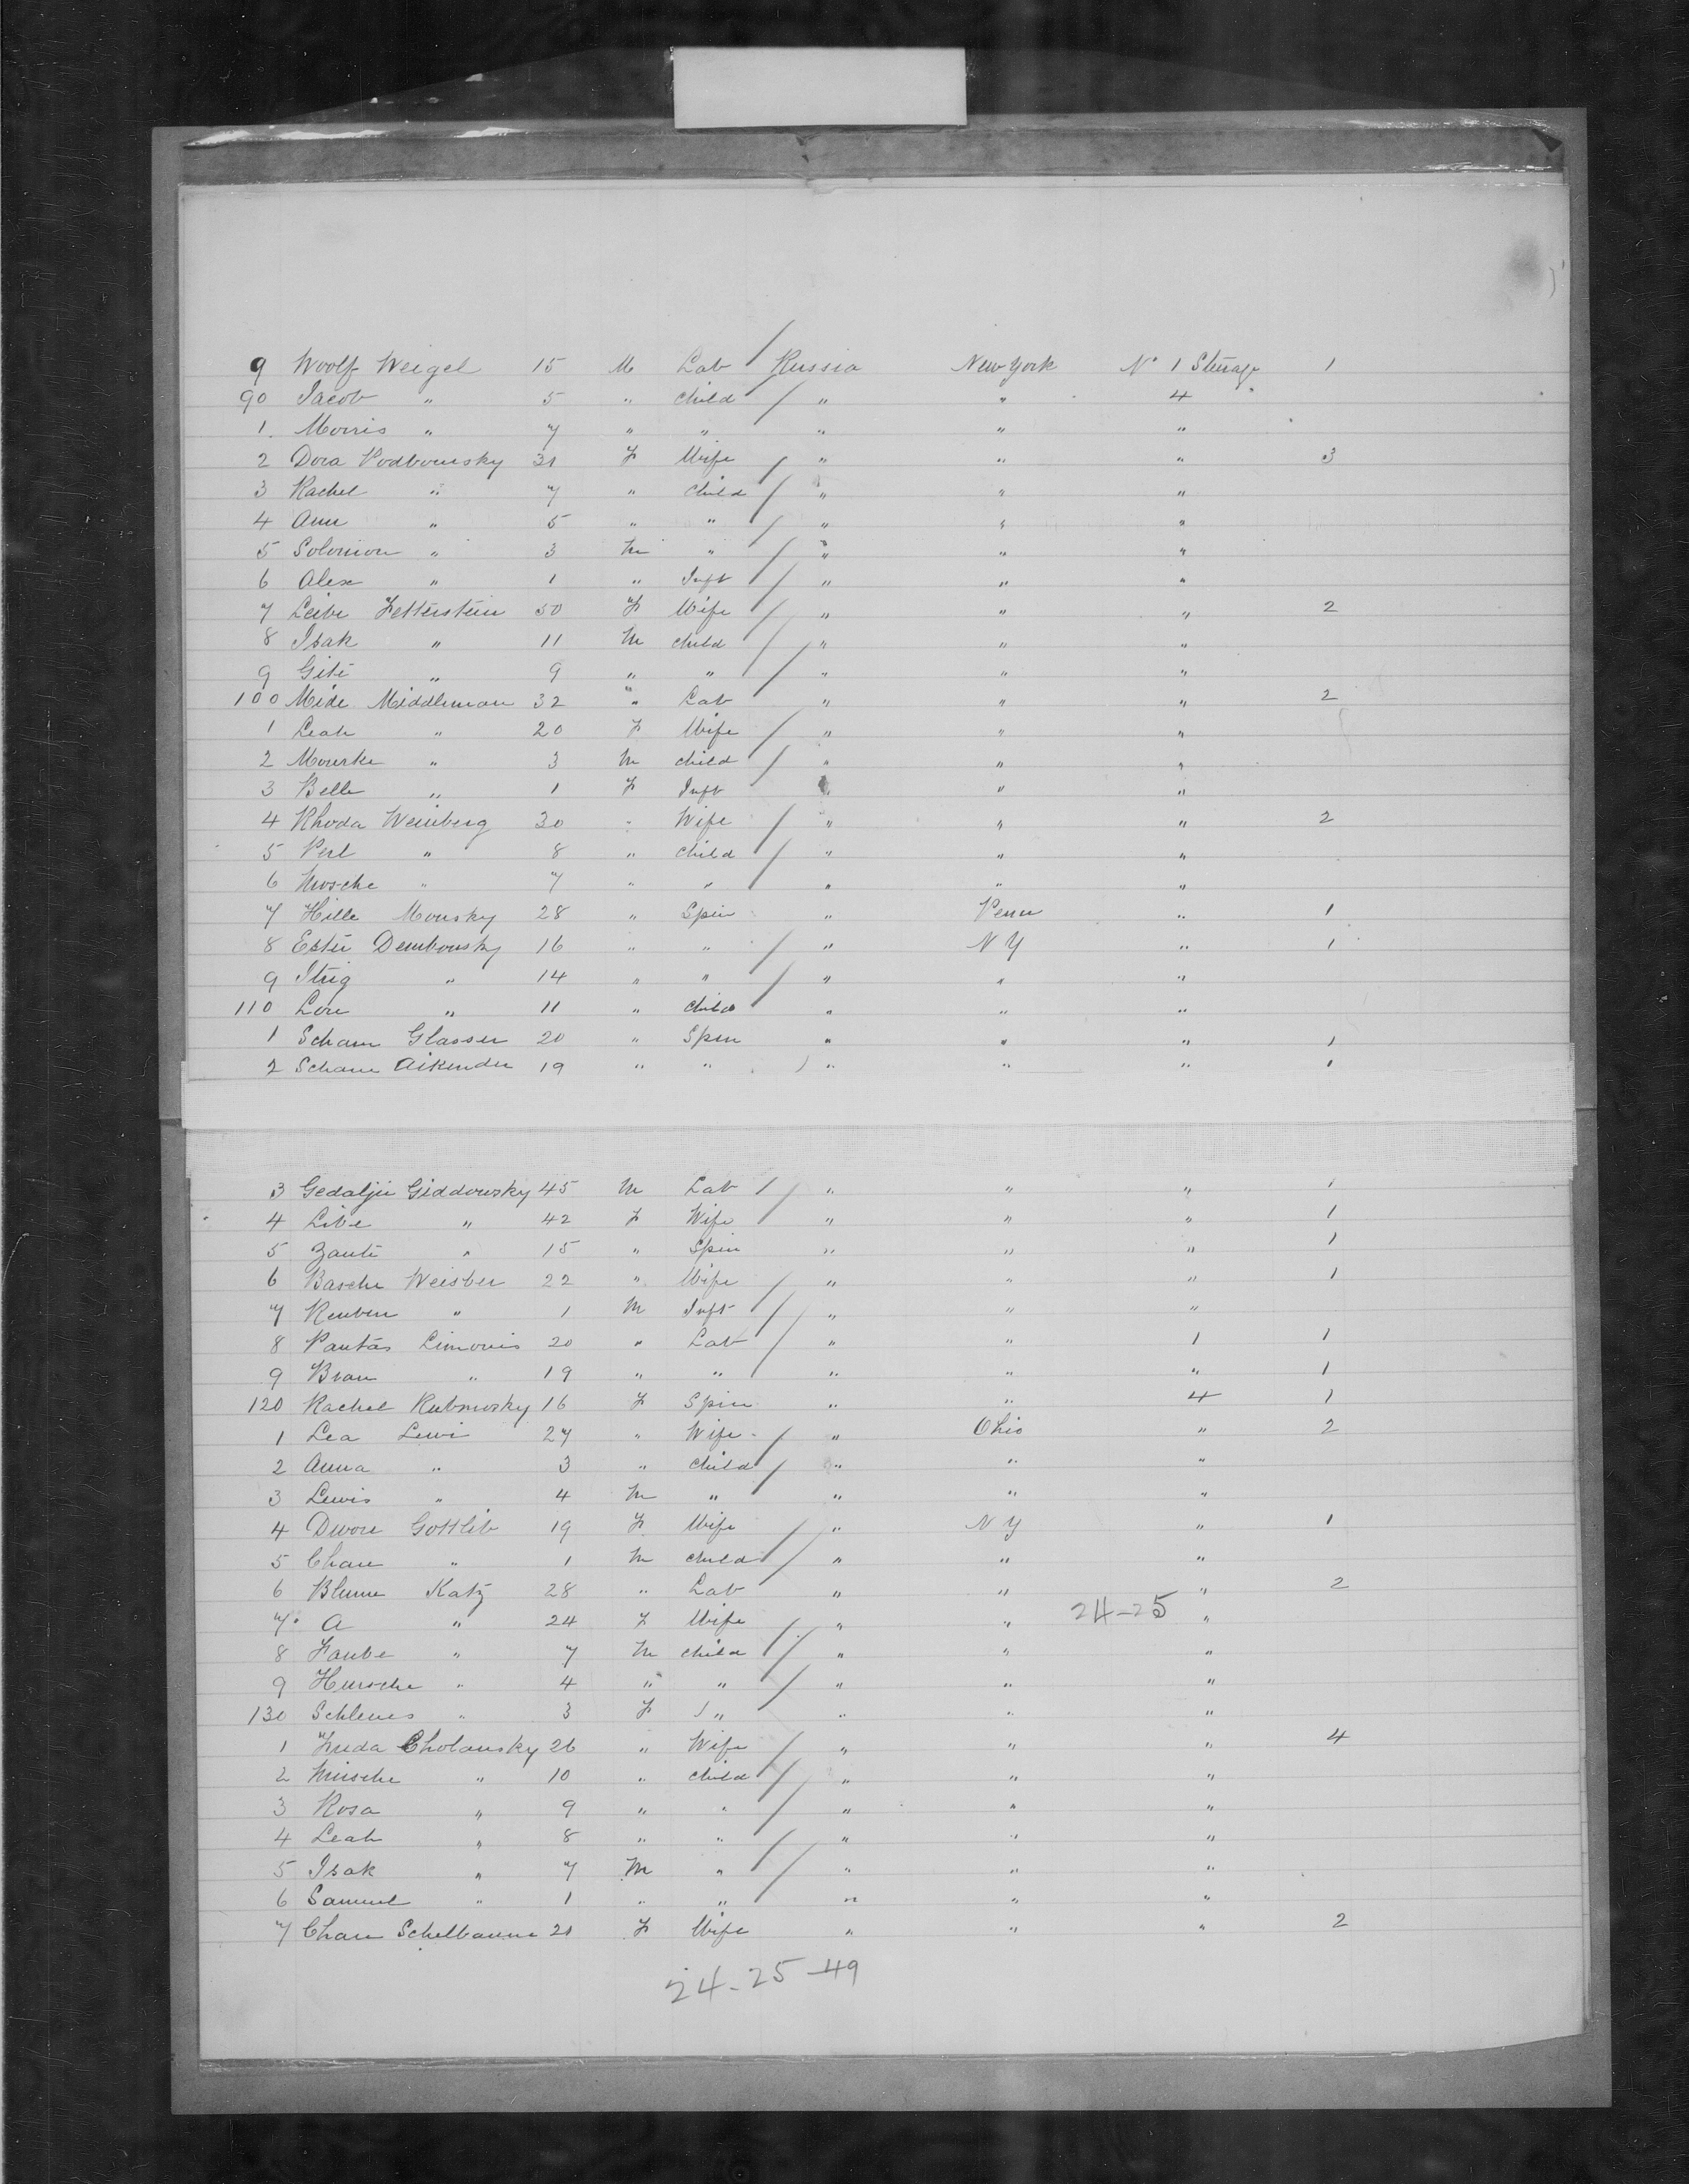 9 Woolf Weigel 15 M Lab / Russia New York No 1 Steerage 1
90 Jacob " 5 " child / " " 4
1. Morris " 7 " " " " "
2 Dora Podbowsky 31 F Wife / " " " 3
3 Rachel " 7 " child / " " "
4 Ann " 5 " " / " " "
5 Solomon " 3 M " / " " "
6 Alex " 1 " Inft / " " "
7 Leibe Fetterstein 50 F Wife / " " " 2
8 Isak " 11 M child / " " "
9 Gite " 9 " " / " " "
100 Meide Middleman 32 " Lab " " " 2
1 Leah " 20 F Wife / " " "
2 Mourke " 3 M child / " " "
3 Belle " 1 F Inft " " "
4 Rhoda Weinberg 30 " Wife / " " " 2
5 Perl " 8 " child / " " "
6 Mosche " 7 " " " " "
7 Hille Monsky 28 " Spin " Penn " 1
8 Ester Dembousky 16 " " / " N Y " 1
9 Itrig " 14 " " / " " "
110 Lore " 11 " child " " "
1 Scham Glasser 20 " Spin " " " 1
2 Schane Aikender 19 " " ) " " " 1
3 Gedalje Giddowsky 45 M Lab / / " " " 1
4 Libe " 42 F Wife " " " 1
5 Zante " 15 " Spin " " " 1
6 Basche Weisber 22 " Wife / " " " 1
7 Reuben " 1 M Inft / " " "
8 Pantas Limonis 20 " Lab / " " 1 1
9 Bran " 19 " " " " " 1
120 Rachel Rubnowsky 16 F Spin " " 4 1
1 Lea Lewi 27 " Wife / " Ohio " 2
2 Anna " 3 " child / " " "
3 Lewis " 4 M " " " "
4 Dwore Gottlib 19 F Wife / " N Y " 1
5 Chane " 1 M child / " " "
6 Blume Katz 28 " Lab " " " 2
7 A " 24 F Wife / " " 24-25 "
8 Faube " 7 M child / " " "
9 Hersche " 4 " " / " " "
130 Schlenes " 3 F " " " "
1 Freda Cholansky 26 " Wife / " " " 4
2 Mische " 10 " child / " " "
3 Rosa " 9 " " / " " "
4 Leah " 8 " " / " " "
5 Isak " 7 M " / " " "
6 Samuel " 1 " " " " "
7 Chane Schelbaume 21 F Wife " " " 2
24-25-49